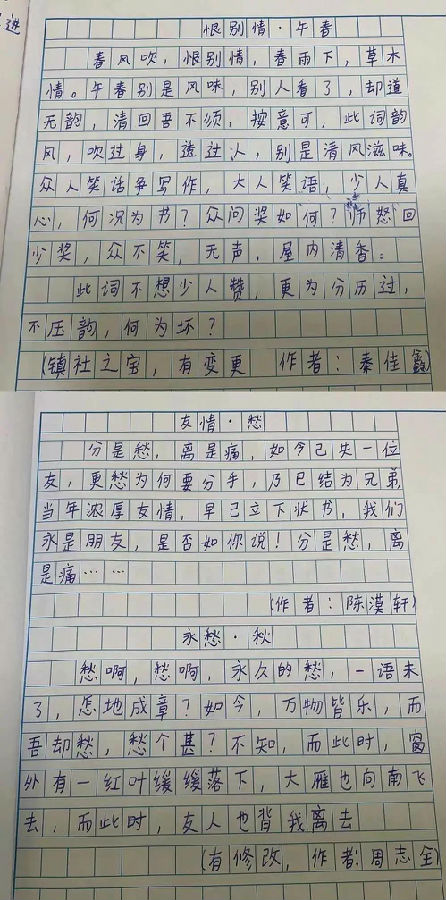 进
恨别情·午春
春风吹，恨别情，春雨下，草木
情。午春别是风味，别人看了，却道
无韵，清回吾不须，按意可，此词韵
风，吹过身，透过人，别是清风滋味。
众人笑话争写作，大人笑语，少人真
心，何况为书？众问奖如何？师怒回
少奖，众不笑，无声，屋内清香。
此词不想少人赞，更为分历过，
不压韵，何为坏？
（镇社之宝，有变更 作者：秦佳鑫）
友情·愁
分是愁，离是痛，如今已失一位
友，更愁为何要分手，乃已结为兄弟
当年浓厚友情，早已立下状书，我们
永是朋友，是否如你说！分是愁，离
是痛……
（作者：陈漠轩）
永愁·秋
愁啊，愁啊，永久的愁，一语未
了，怎地成章？如今，万物皆乐，而
吾却愁，愁个甚？不知，而此时，窗
外有一红叶缓缓落下，大雁也向南飞
去，而此时，友人也背我离去
（有修改，作者：周志全）